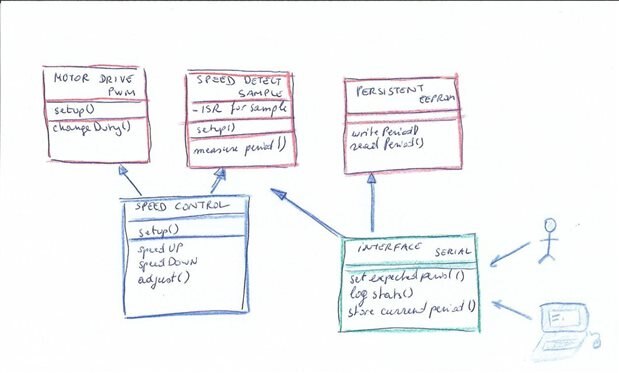 MOTOR DRIVE
PWM
setup()
changeDuty()
SPEED DETECT
SAMPLE
-ISR for sample
setup()
measure period()
PERSISTENT
EEPROM
writePeriod()
readPeriod()
SPEED CONTROL
setup()
speedUP
speedDOWN
adjust()
INTERFACE SERIAL
set expected period()
log stats()
store current period()